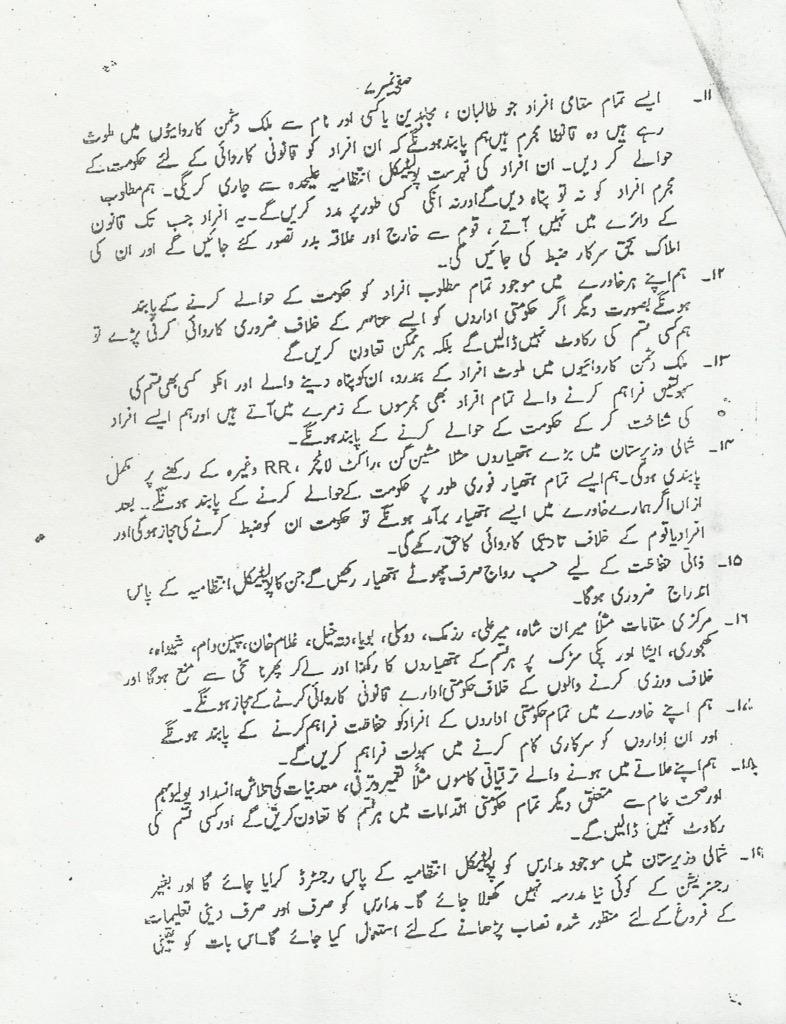 صفحہ نمبر ۷
۱۱۔ ایسے تمام مقامی افراد جو طالبان ، مجاہدین یا کسی اور نام سے ملک دشمن کاروائیوں میں ملوث
رہے ہیں وہ قانونا مجرم ہیں ہم پابند ہونگے کہ ان افراد کو قانونی کاروائی کے لئے حکومت کے
حوالے کر دیں۔ ان افراد کی فہرست پولیٹیکل انتظامیہ علیحدہ سے جاری کریگی۔ ہم مطلوب
مجرم افراد کو نہ تو پناہ دیں گے اور نہ انکی کسی طور پر مدد کریں گے۔ یہ افراد جب تک قانون
کے دائرے میں نہیں آتے ، قوم سے خارج اور علاقہ بدر تصور کئے جائیں گے اور ان کی
املاک بحق سرکار ضبط کی جائیں گی۔
۱۲۔ ہم اپنے ہر خاورے میں موجود تمام مطلوب افراد کو حکومت کے حوالے کرنے کے پابند
ہونگے بصورت دیگر اگر حکومتی اداروں کو ایسے عناصر کے خلاف ضروری کاروائی کرنی پڑے تو
ہم کسی قسم کی رکاوٹ نہیں ڈالیں گے بلکہ ہر ممکن تعاون کریں گے
۱۳۔ ملک دشمن کاروائیوں میں ملوث افراد کے ہمدرد، ان کو پناہ دینے والے اور انکو کسی بھی قسم کی
سہولتیں فراہم کرنے والے تمام افراد بھی مجرموں کے زمرے میں آتے ہیں اور ہم ایسے افراد
کی شناخت کر کے حکومت کے حوالے کرنے کے پابند ہونگے۔
۱۴۔ شمالی وزیرستان میں بڑے ہتھیاروں مثلا مشین گن ،راکٹ لانچر ، RR وغیرہ کے رکھنے پر مکمل
پابندی ہوگی۔ ہم ایسے تمام ہتھیار فوری طور پر حکومت کے حوالے کرنے کے پابند ہونگے۔ بعد
ازاں اگر ہمارے خاورے میں ایسے ہتھیار برآمد ہونگے تو حکومت ان کو ضبط کرنے کی مجاز ہوگی اور
افراد یا قوم کے خلاف تادیبی کاروائی کا حق رکھے گی۔
۱۵۔ ذاتی حفاظت کے لیے حسب رواج صرف چھوٹے ہتھیار رکھیں گے جن کا پولیٹیکل انتظامیہ کے پاس
اندراج ضروری ہوگا۔
۱۶۔ مرکزی مقامات مثلاً میران شاہ، میر علی، رزمک، دوسلی، بویا، دتہ خیل، غلام خان، سپین وام، شیواہ،
کھجوری، ایشا اور پکی سڑک پر ہر قسم کے ہتھیاروں کا رکھنا اور لے کر پھرنا سختی سے منع ہوگا اور
خلاف ورزی کرنے والوں کے خلاف حکومتی ادارے قانونی کاروائی کرنے کے مجاز ہونگے۔
۱۷۔ ہم اپنے خاورے میں تمام حکومتی اداروں کے افراد کو حفاظت فراہم کرنے کے پابند ہونگے
اور ان اداروں کو سرکاری کام کرنے میں سہولت فراہم کریں گے۔
۱۸۔ ہم اپنے علاقے میں ہونے والے ترقیاتی کاموں مثلاً تعمیر و ترقی، معدنیات کی تلاش، انسداد پولیو مہم
اور صحت عامہ سے متعلق دیگر تمام حکومتی اقدامات میں ہر قسم کا تعاون کریں گے اور کسی قسم کی
رکاوٹ نہیں ڈالیں گے۔
۱۹۔ شمالی وزیرستان میں موجود مدارس کو پولیٹیکل انتظامیہ کے پاس رجسٹرڈ کرایا جائے گا اور بغیر
رجسٹریشن کے کوئی نیا مدرسہ نہیں کھولا جائے گا۔ مدارس کو صرف اور صرف دینی تعلیمات
کے فروغ کے لئے منظور شدہ نصاب پڑھانے کے لئے استعمال کیا جائے گا۔ اس بات کو یقینی